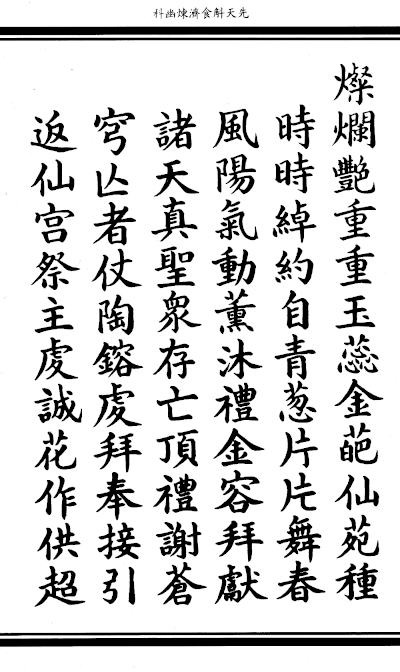 先天斛食濟煉幽科
燦爛艷重重玉蕊金葩仙苑種
時時綽約自青葱片片舞春
風陽氣動薰沐禮金容拜獻
諸天真聖衆存亡頂禮謝蒼
穹亾者仗陶鎔虔拜奉接引
返仙宮祭主虔誠花作供超